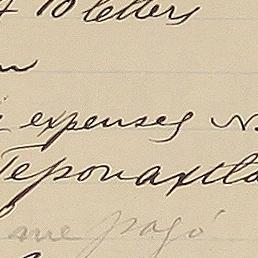 10 letters
expenses N.
Teponaxtla
me pagó